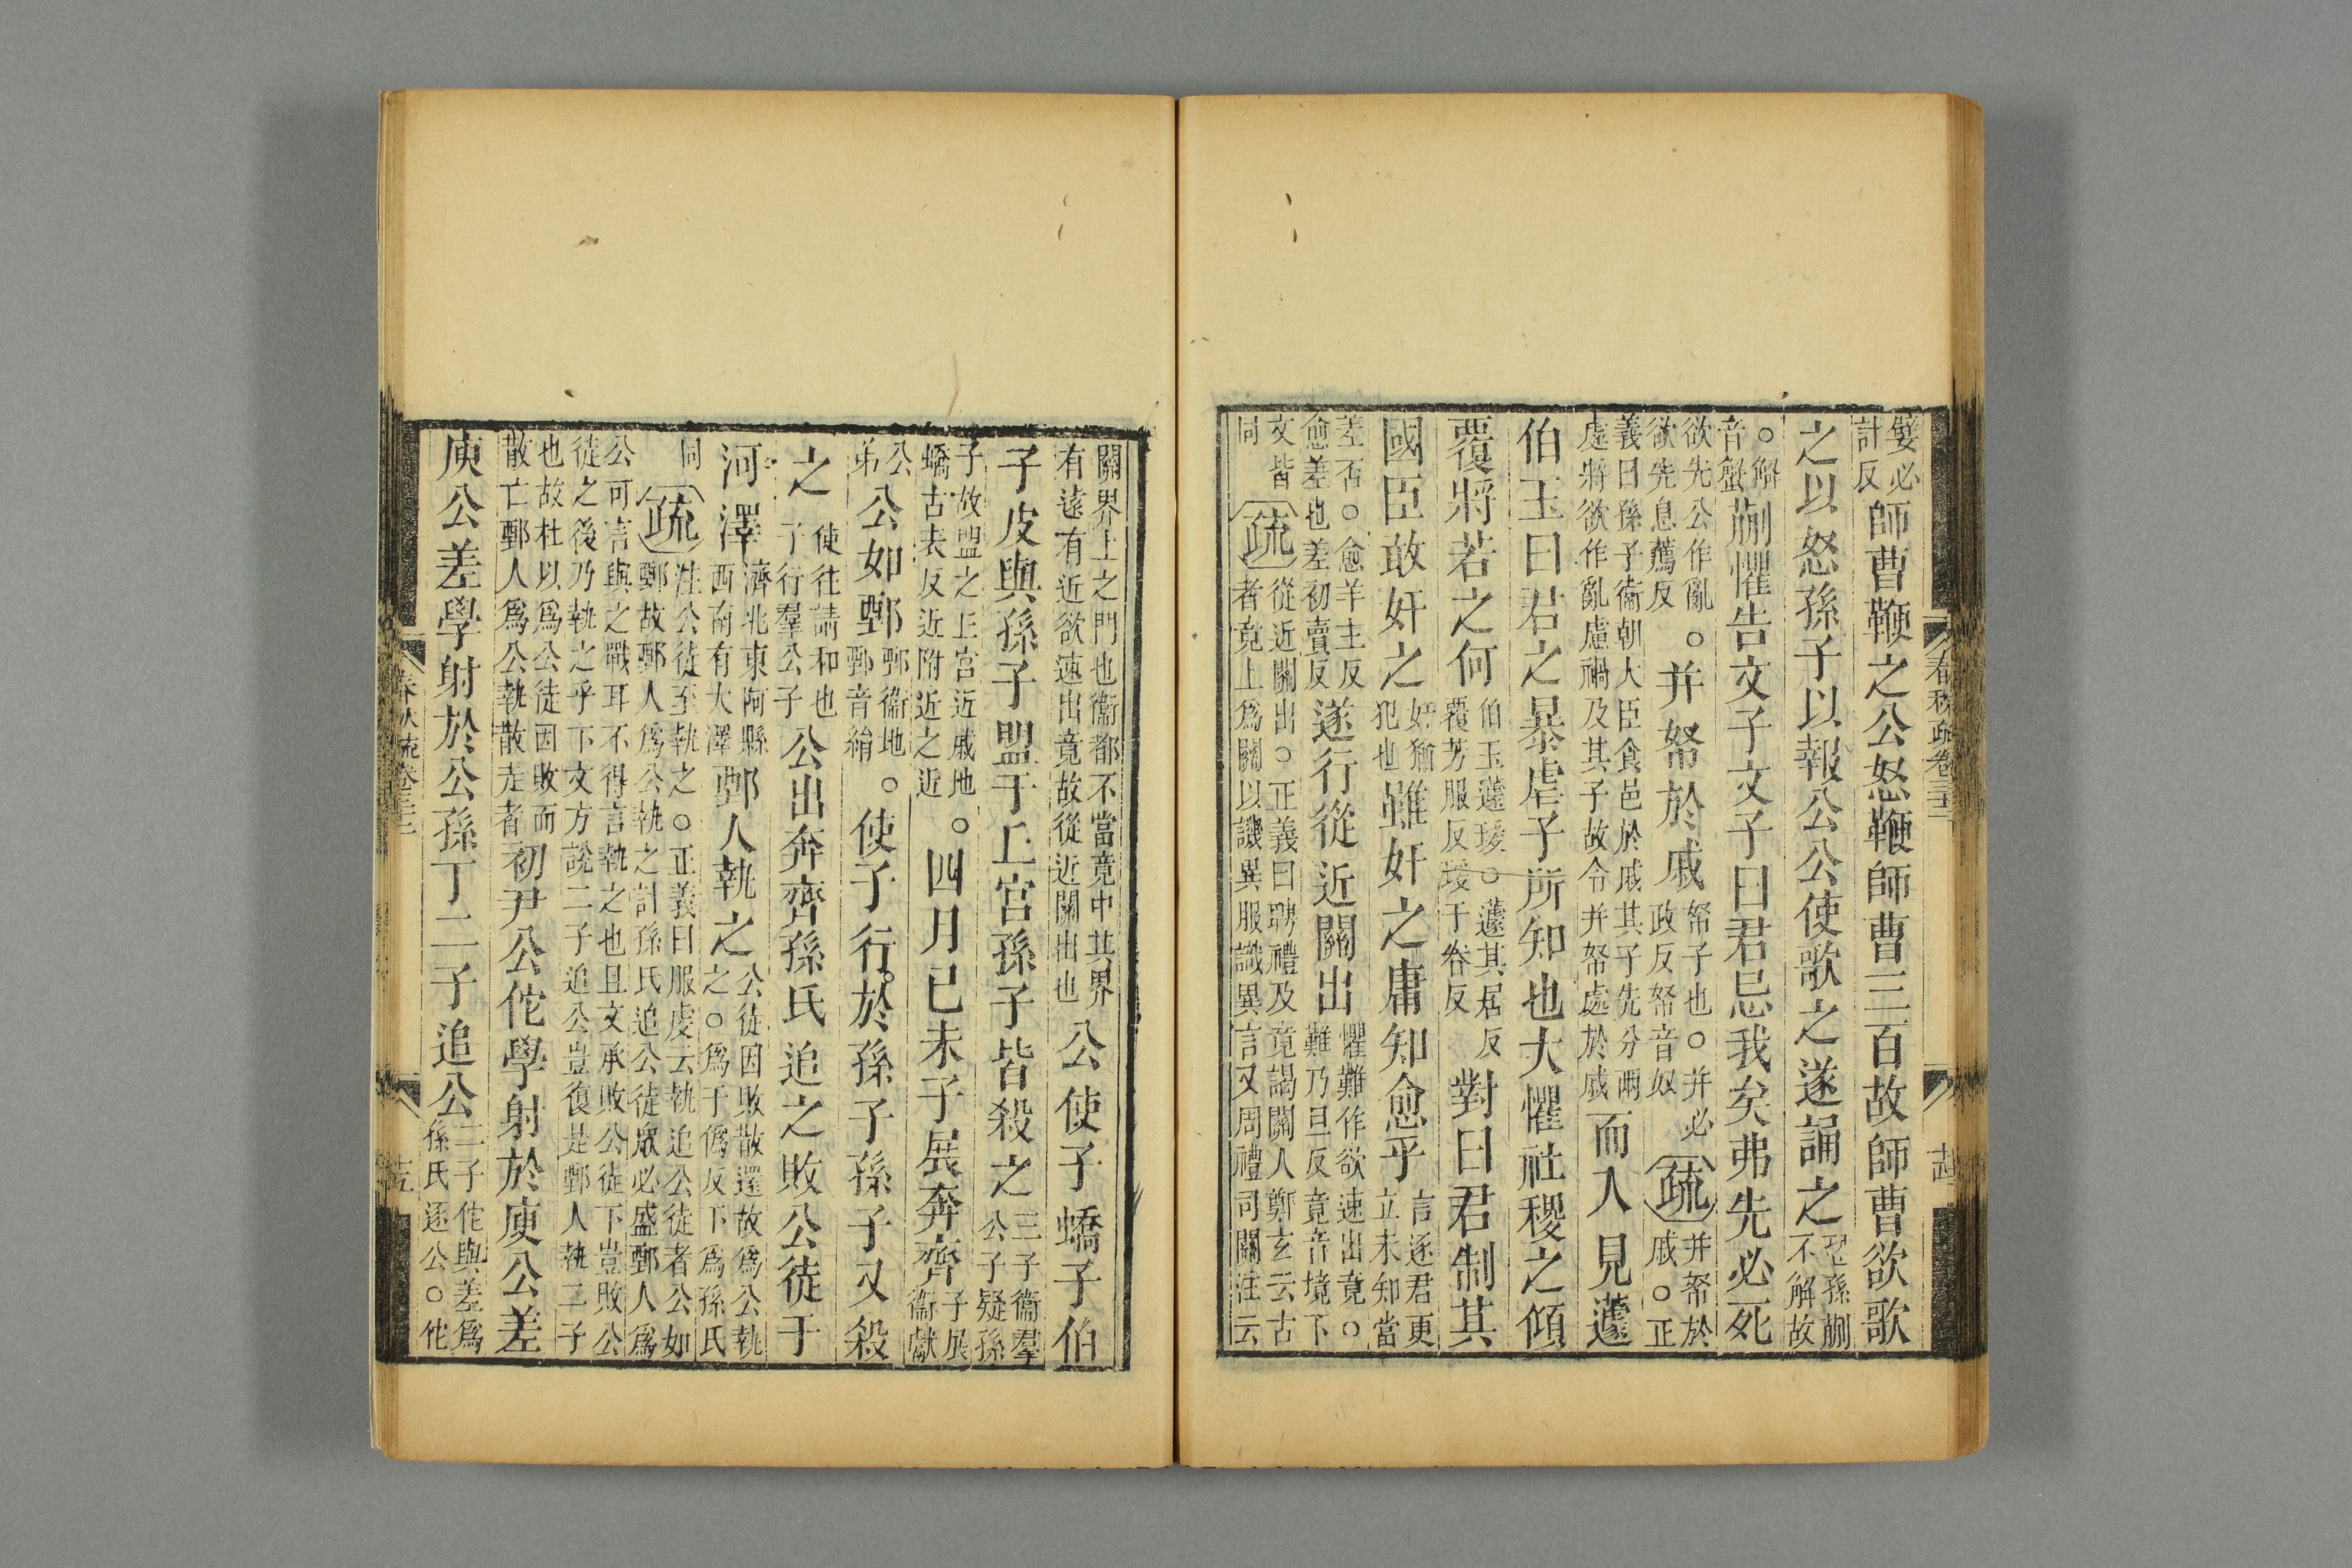 嬖必
計反
師曹鞭之公怒鞭師曹三百故師曹欲歌
之以怒孫子以報公公使歌之遂誦之
恐孫蒯
不解故
○解
音蟹
蒯懼告文子文子曰君忌我矣弗先必死
欲先公作亂○
欲先息薦反
并帑於戚
帑子也○并必
政反帑音奴
疏
并帑於
戚○正
義曰孫子衞朝大臣食邑於戚其子先分兩
處將欲作亂慮禍及其子故令并帑處於戚
而入見蘧
伯玉曰君之暴虐子所知也大懼社稷之傾
覆將若之何
伯玉蘧瑗○蘧其居反
覆芳服反瑗于眷反
對曰君制其
國臣敢奸之
奸猶
犯也
雖奸之庸知愈乎
言逐君更
立未知當
差否○愈羊主反
愈差也差初賣反
遂行從近關出
懼難作欲速出竟○
難乃旦反竟音境下
文皆
同
疏
從近關出○正義曰聘禮及竟謁關人鄭玄云古
者竟上爲關以譏異服識異言又周禮司關注云
關界上之門也衞都不當竟中其界
有遠有近欲速出竟故從近關出也
公使子蟜子伯
子皮與孫子盟于丘宮孫子皆殺之
三子衞羣
公子疑孫
子故盟之丘宮近戚地
蟜古表反近附近之近
○四月己未子展奔齊
子展
衞獻
公
弟
公如鄄
鄄衞地
鄄音絹
○使子行於孫子孫子又殺
之
使往請和也
子行羣公子
公出奔齊孫氏追之敗公徒于
河澤
濟北東阿縣
西南有大澤
鄄人執之
公徒因敗散還故爲公執
之○爲于僞反下爲孫氏
同
疏
注公徒至執之○正義曰服虔云執追公徒者公如
鄄故鄄人爲公執之計孫氏追公徒衆必盛鄄人爲
公可言與之戰耳不得言執之也且文承敗公徒下豈敗公
徒之後乃執之乎下文方說二子追公豈復是鄄人執二子
也故杜以爲公徒因敗而
散亡鄄人爲公執散走者
初尹公佗學射於庾公差
庾公差學射於公孫丁二子追公
二子佗與差爲
孫氏逐公○佗
春秋疏卷三十二